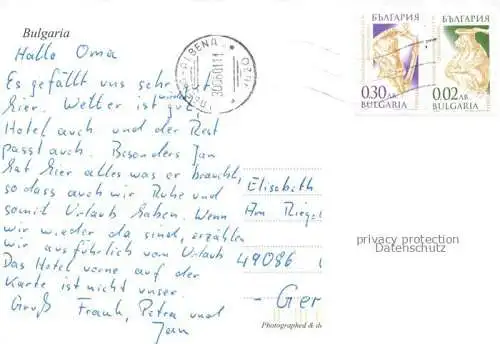 Bulgaria
Hallo Oma
Es gefällt uns sehr gut
hier. Wetter ist wieder gut,
Hotel auch und der Rest
passt auch. Besonders Jan
hat hier alles was er braucht,
so dass auch wir Ruhe und
somit Urlaub haben. Wenn
wir wieder da sind, erzählen
wir ausführlich vom Urlaub
Das Hotel vorne auf der
Karte ist nicht unser.
Gruß Frank, Petra und
Jan
ALBENA
БЪЛГАРИЯ
0.30 ЛВ.
BULGARIA
БЪЛГАРИЯ
0.02 ЛВ.
BULGARIA
Elisabeth
Am Riegel
49086
- Ger
privacy protection
Datenschutz
Photographed & d